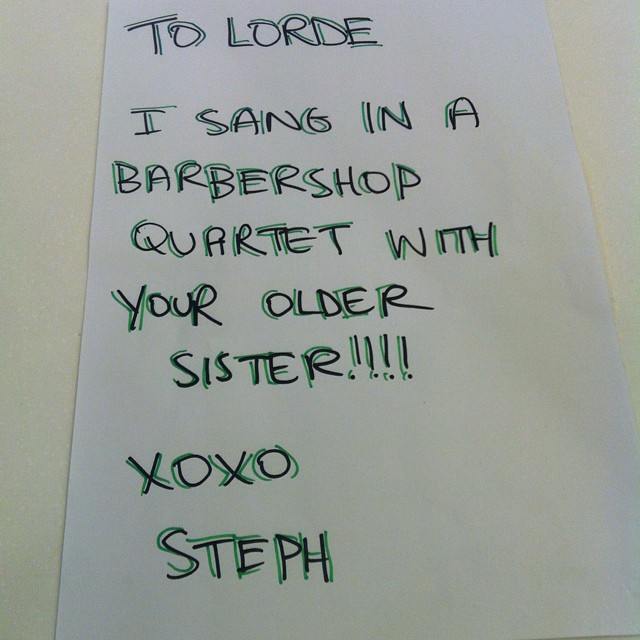 TO LORDE
I SANG IN A
BARBERSHOP
QUARTET WITH
YOUR OLDER
SISTER!!!!
XOXO
STEPH